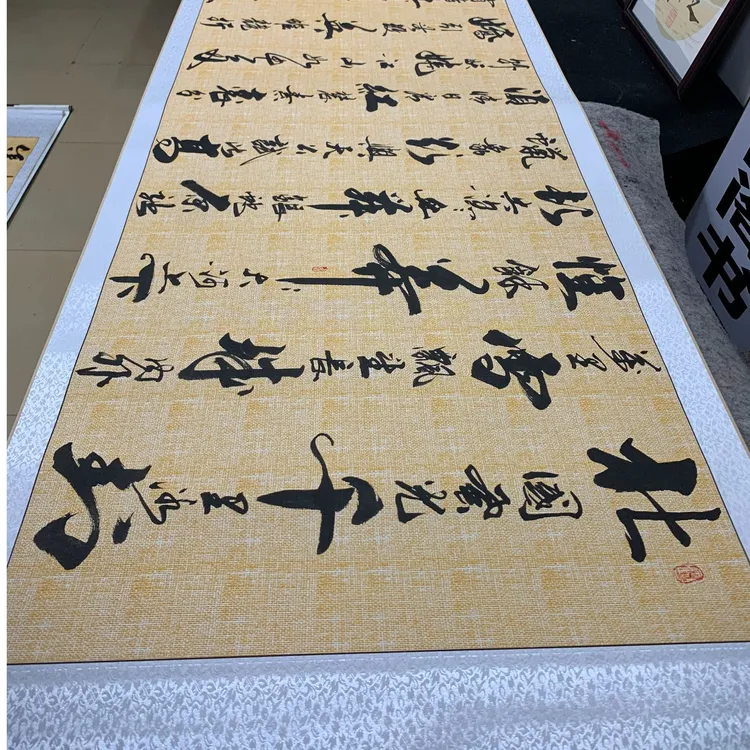 北國風光千里冰封
萬里雪飄望長城內外
惟餘莽莽大河上下
頓失滔滔山舞銀蛇原馳
蠟象欲與天公試比高
須晴日看紅裝素裹
分外妖嬈江山如此多
嬌引無數英雄競折
书